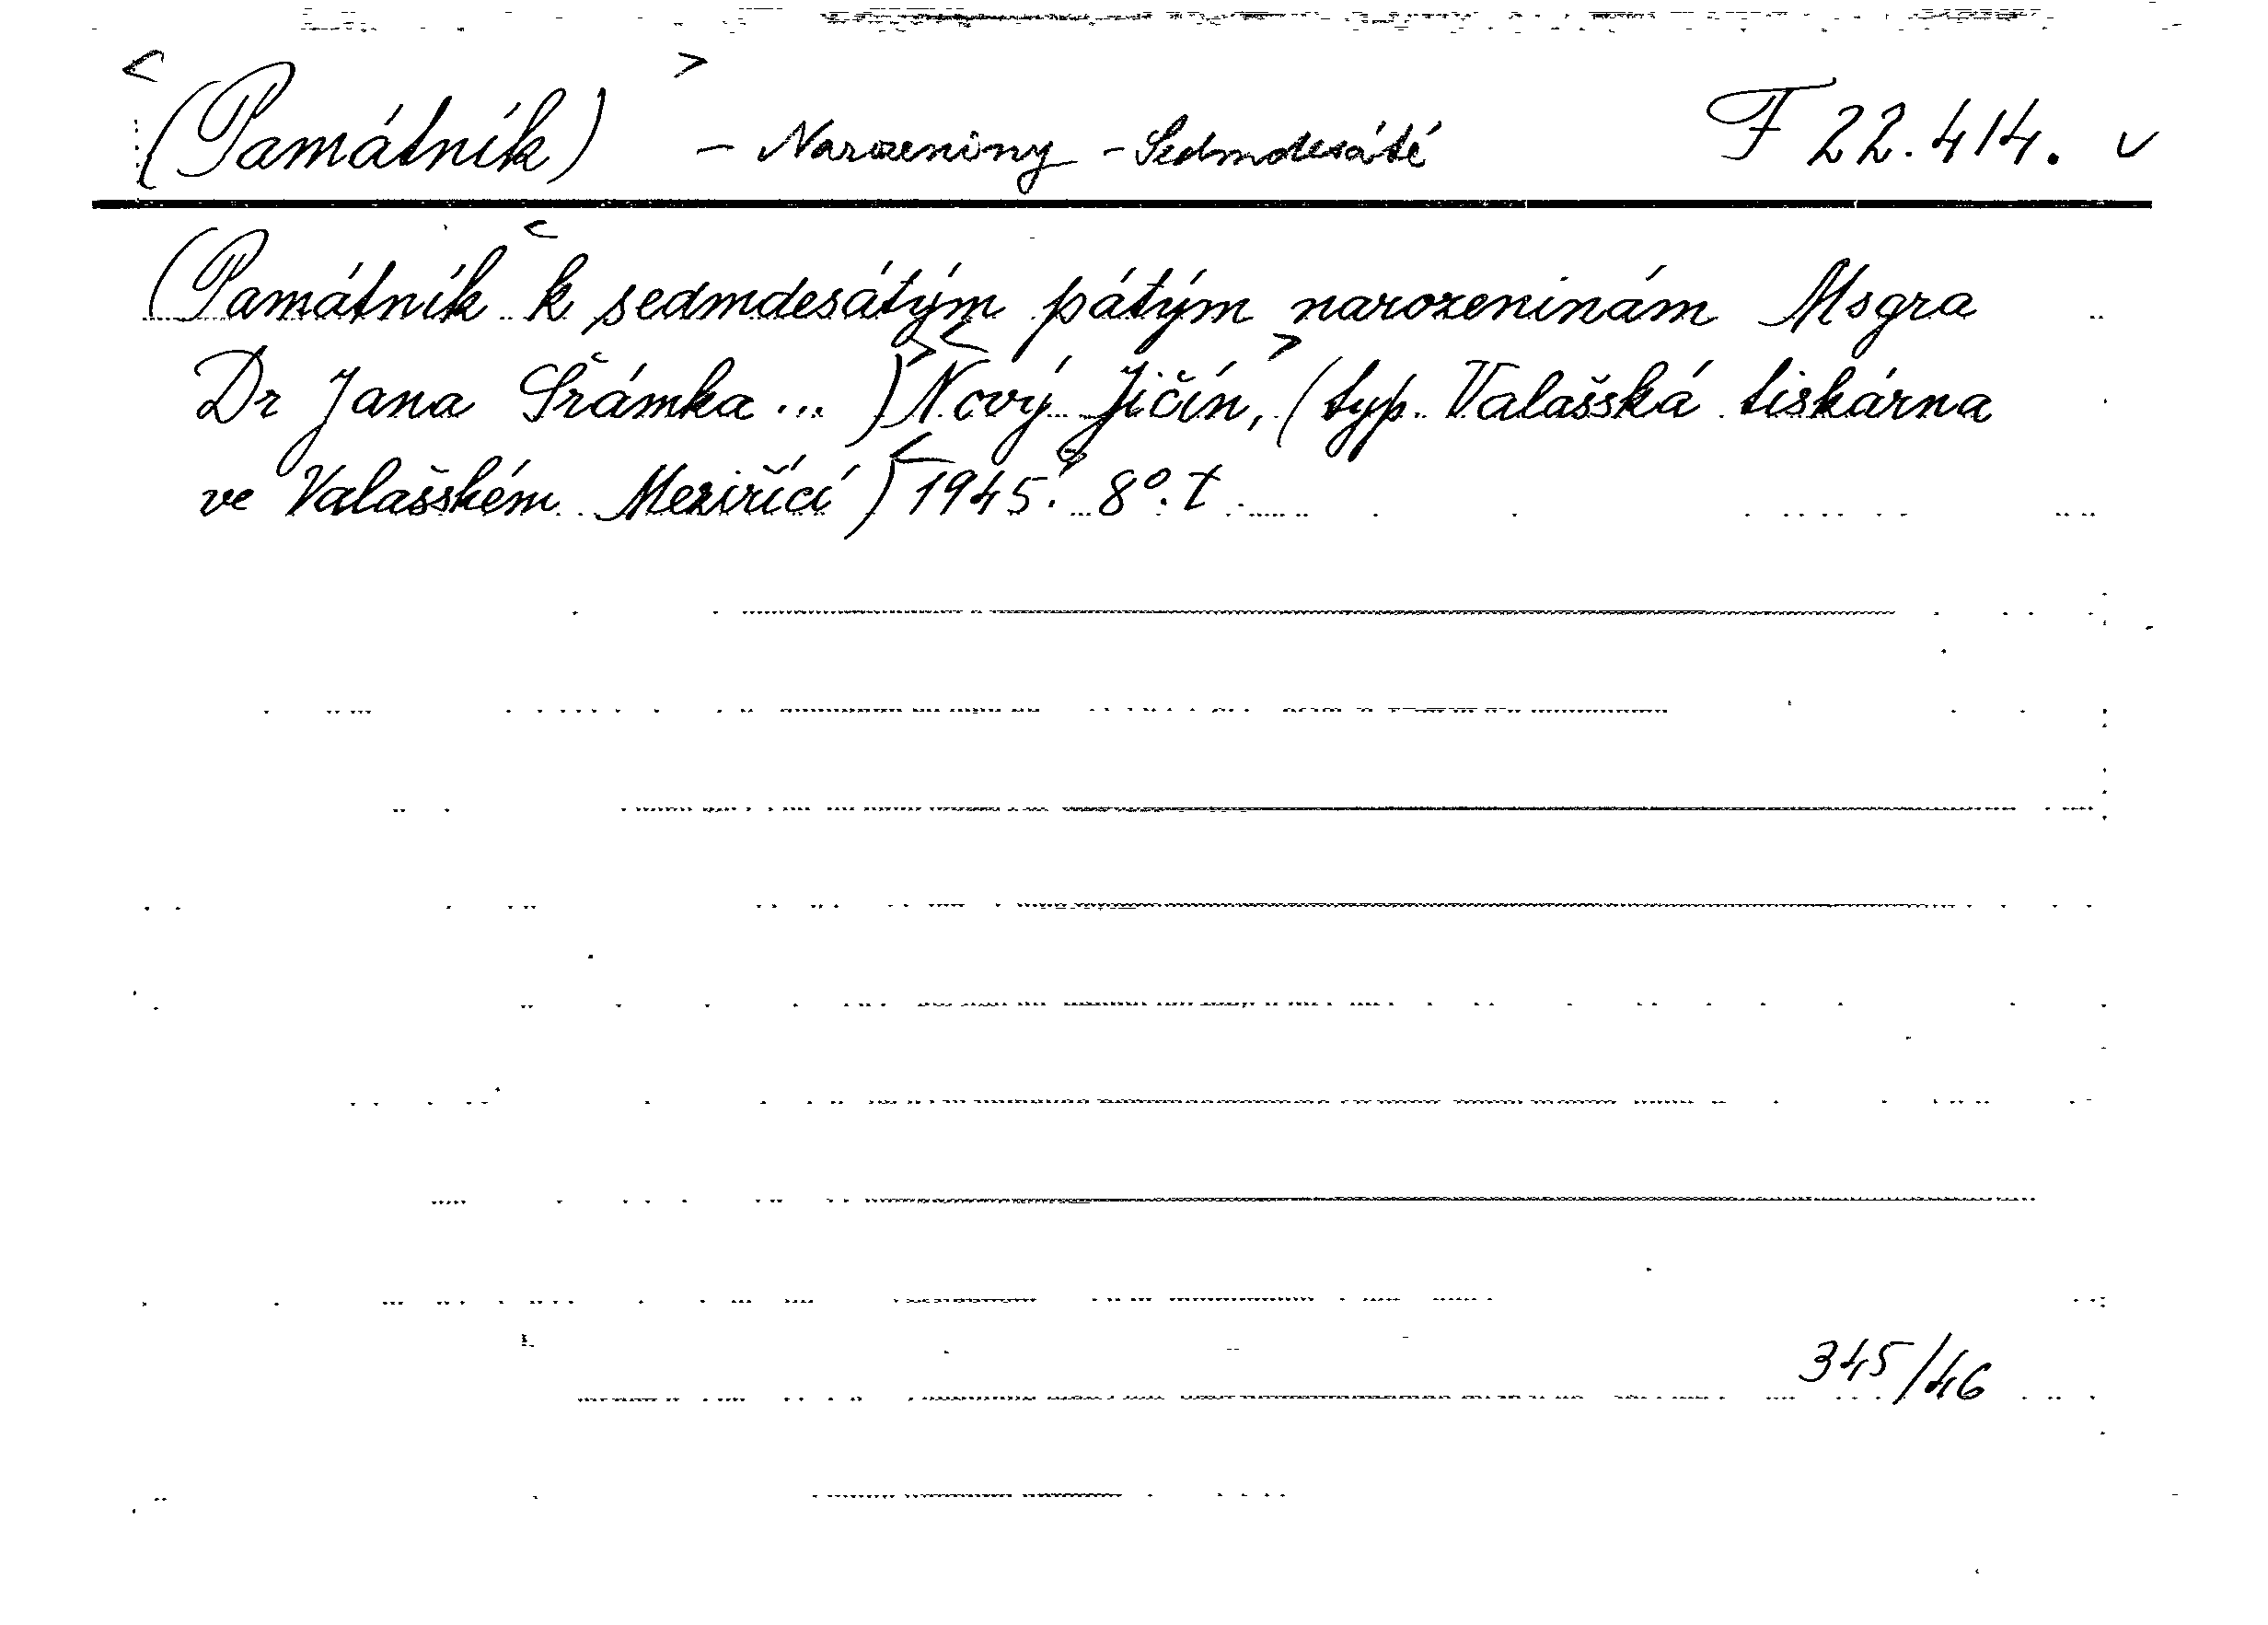 < (Památník) > – Narozeniny – Sedmdesáté F 22.414. v
(Památník < k sedmdesátým pátým narozeninám Msgra
Dr Jana Šrámka ... ) > < Nový Jičín, > (typ. Valašská tiskárna
ve Valašském Meziříčí) < 1945. 8°. t
345/46